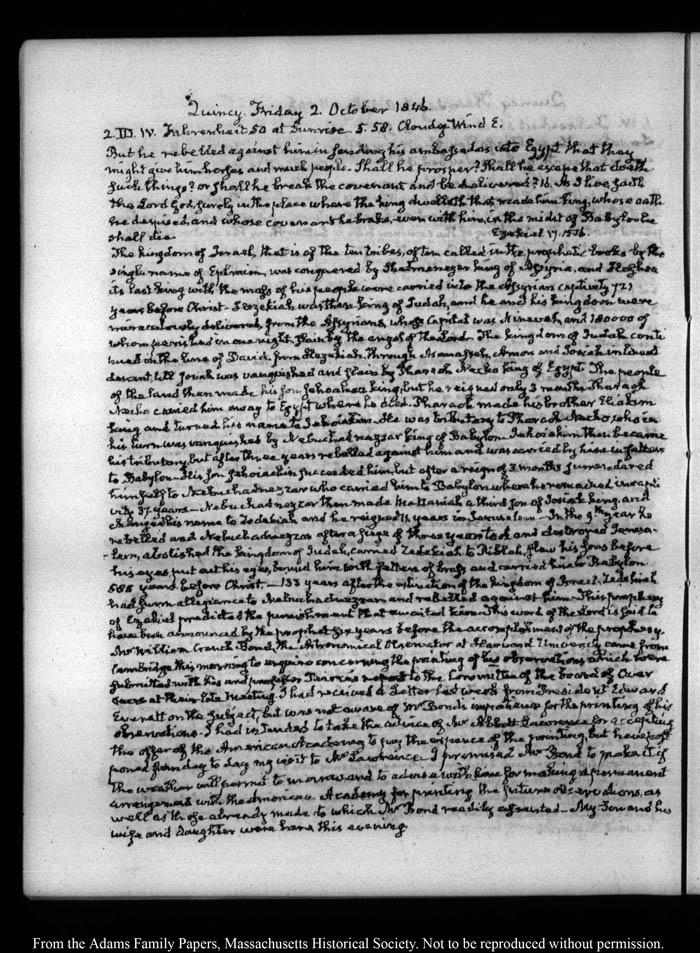 Quincy. Friday 2. October 1846.
2. III. IV. Fahrenheit 50 at Sunrise. 5.58. Cloudy Wind E.
But he rebelled against him in sending his ambassadors into Egypt that they
might give him horses and much people. Shall he prosper? Shall he escape that doeth
such things? or shall he break the covenant and be delivered? 16. As I live, saith
the Lord God, surely in the place where the king dwelleth that made him king, whose oath
he despised, and whose covenant he brake, even with him, in the midst of Babylon he
shall die. Ezekiel 17. 15.16.
The kingdom of Israel, that is of the ten tribes, often called in the prophetic books by the
single name of Ephraim, was conquered by Shalmanezer king of Assyria, and Hoshea
its last king with the mass of his people were carried into the Assyrian captivity 721
years before Christ. Hezekiah was then king of Judah, and he and his kingdom were
miraculously delivered from the Assyrians, whose Capital was Nineveh, and 180000 of
whom perished in one night, slain by the angel of the Lord. The kingdom of Judah conti
nued in the line of David from Hezekiah, through Manasseh, Amon and Josiah in lineal
descent, till Josiah was vanquished and slain by Pharaoh Necho king of Egypt. The people
of the land then made his son Jehoahaz king, but he reigned only 3 months. Pharaoh
Necho carried him away to Egypt where he died. Pharaoh made his brother Eliakim
king and turned his name to Jehoiakim. He was tributary to Pharaoh Necho, who in
his turn was vanquished by Nebuchadnezzar king of Babylon. Jehoiakim then became
his tributary, but after three years rebelled against him and was carried by him in fetters
to Babylon. His son Jehoiachin succeeded him, but after a reign of 3 months surrendered
himself to Nebuchadnezzar who carried him to Babylon where he remained in capti
vity 37 years. Nebuchadnezzar then made Mattaniah a third son of Josiah king, and
changed his name to Zedekiah and he reigned 11 years in Jerusalem. In the 9th year he
rebelled and Nebuchadnezzar after a siege of three years took and destroyed Jerusa-
lem, abolished the kingdom of Judah, carried Zedekiah to Riblah, slew his sons before
his eyes, put out his eyes, bound him with fetters of brass and carried him to Babylon
588 years before Christ. 133 years after the extinction of the kingdom of Israel. Zedekiah
had sworn allegiance to Nebuchadnezzar and rebelled against him. This prophecy
of Ezekiel predicted the punishment that awaited him. This word of the Lord is said to
have been announced by the prophet six years before the accomplishment of the prophecy.
Mr William Cranch Bond, the Astronomical Observator at Harvard University came from
Cambridge this morning to enquire concerning the printing of his observations which were
submitted with his and professor Peirce's report to the Committee of the board of Over
seers at their late meeting. I had received a Letter last week from President Edward
Everett on the subject, but was not aware of Mr Bond's impatience for the printing of his
observations. I had intended to take the advice of Mr Abbott Lawrence for accepting
the offer of the American Academy to pay the expence of the printing, but have post
poned from day to day my visit to Mr Lawrence. I promised Mr Bond to make it if
the weather will permit to morrow and to advise with him for making a permanent
arrangement with the American Academy for printing the future observations, as
well as those already made to which Mr Bond readily assented. My Son and his
wife and daughter were here this evening
From the Adams Family Papers, Massachusetts Historical Society. Not to be reproduced without permission.